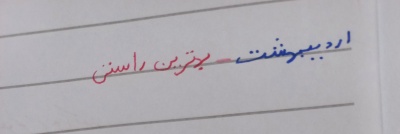 اردیبهشت - بهترین راستی